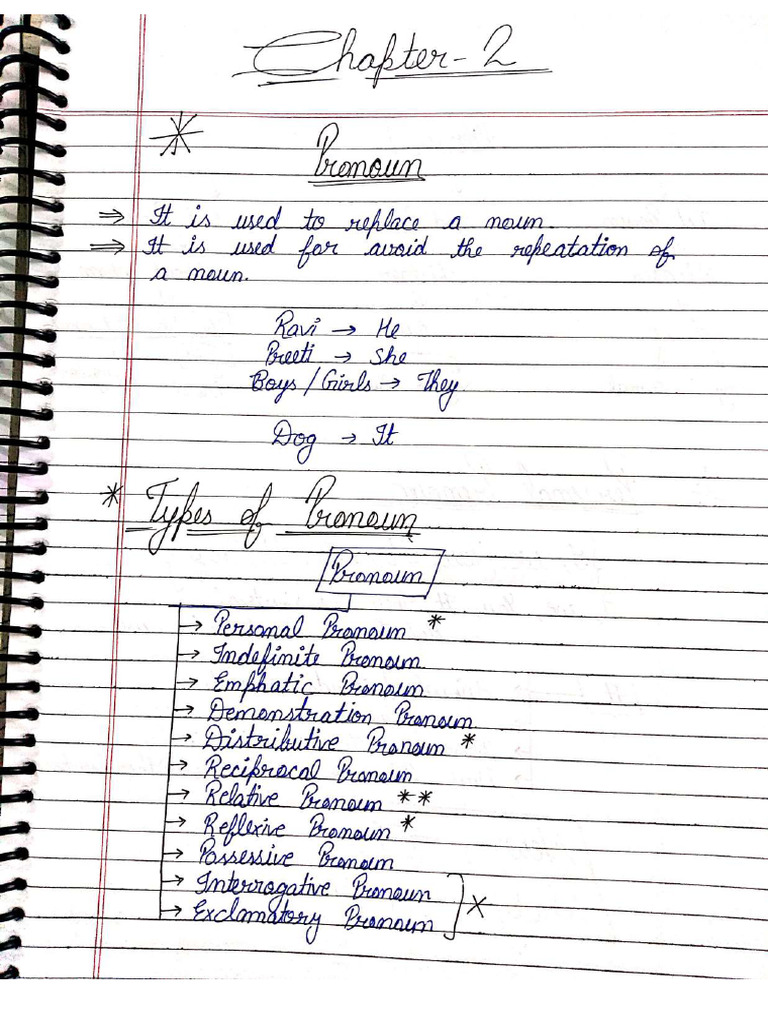 Chapter-2
* Pronoun
⇒ It is used to replace a noun.
⇒ It is used for avoid the repeatation of
a noun.
Ravi → He
Preeti → She
Boys / Girls → They
Dog → It
* Types of Pronoun
Pronoun
→ Personal Pronoun *
→ Indefinite Pronoun
→ Emphatic Pronoun
→ Demonstration Pronoun
→ Distributive Pronoun *
→ Reciprocal Pronoun
→ Relative Pronoun **
→ Reflexive Pronoun *
→ Possessive Pronoun
→ Interrogative Pronoun
→ Exclamatory Pronoun ×